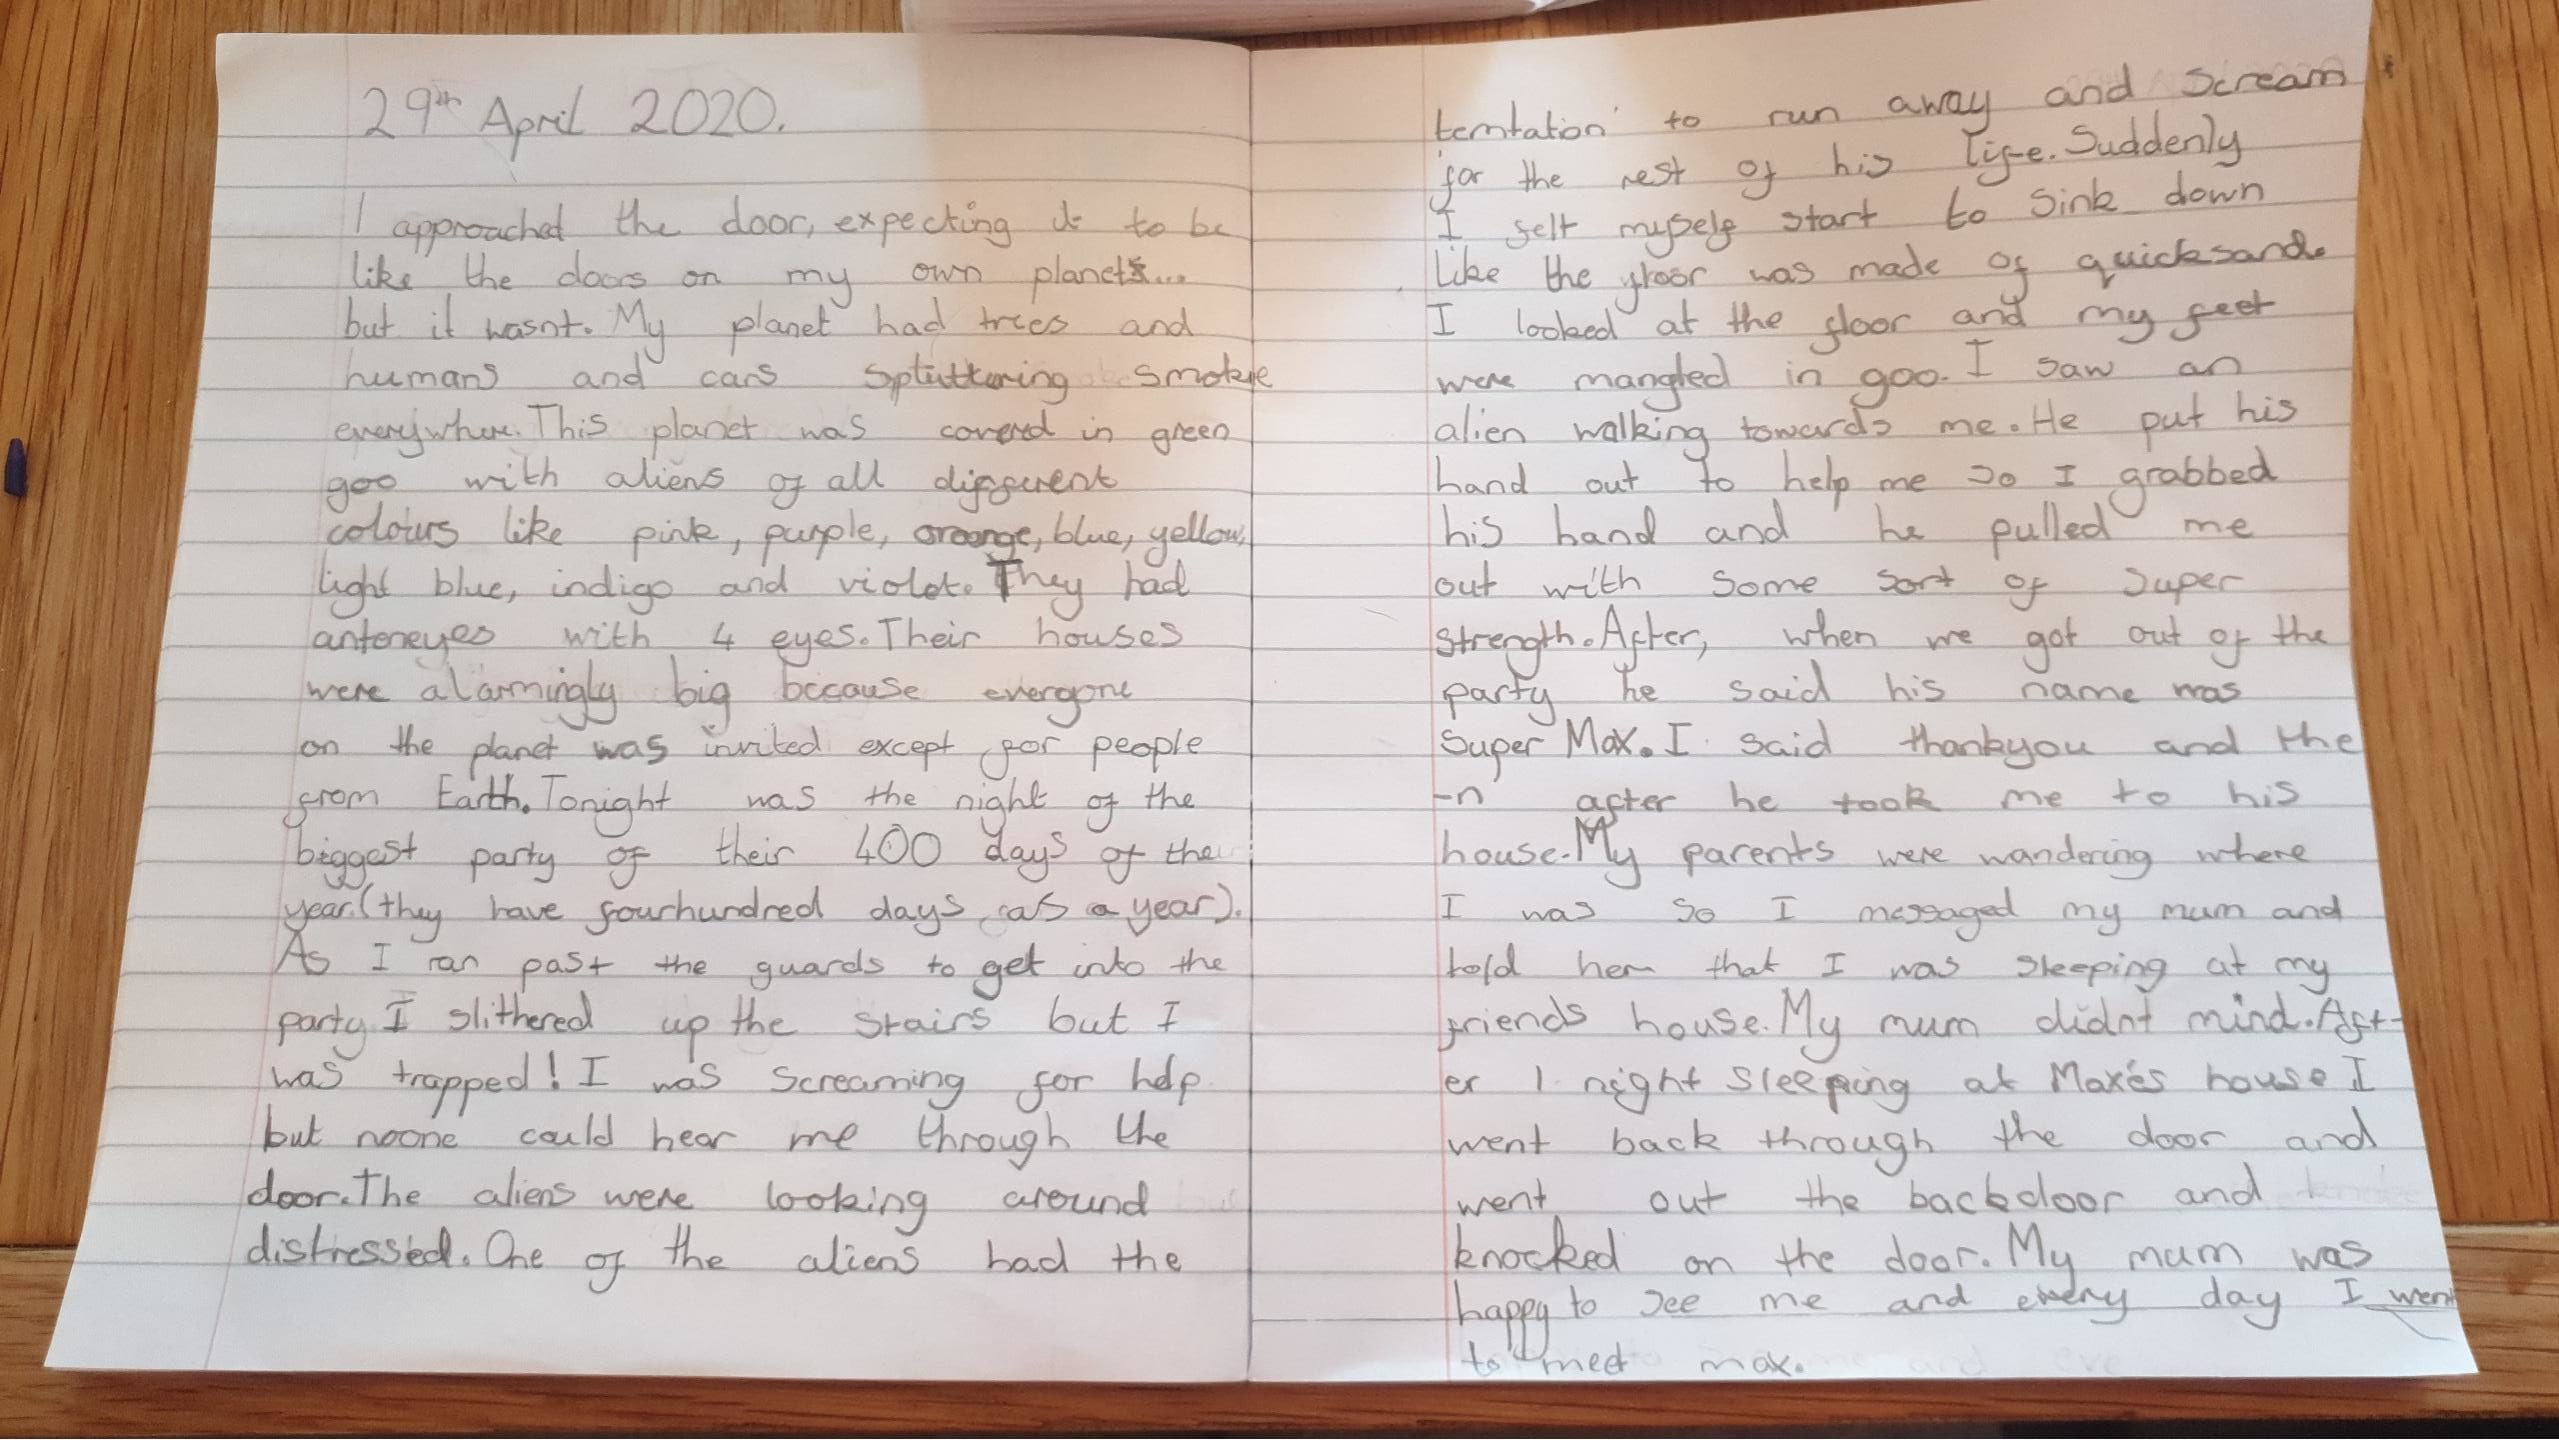 29th April 2020.
I approached the door, expecting it to be
like the doors on my own planet...
but it wasnt. My planet had trees and
humans and cars spluttering smoke
everywhere. This planet was covered in green
goo with aliens of all different
colours like pink, purple, orange, blue, yellow,
light blue, indigo and violet. They had
anteneyes with 4 eyes. Their houses
were alarmingly big because everyone
on the planet was invited except for people
from Earth. Tonight was the night of the
biggest party of their 400 days of the
year. (they have fourhundred days as a year).
As I ran past the guards to get into the
party I slithered up the stairs but I
was trapped! I was screaming for help
but noone could hear me through the
door. The aliens were looking around
distressed. One of the aliens had the
temtation to run away and scream
for the rest of his life. Suddenly
I felt myself start to sink down
like the floor was made of quicksand.
I looked at the floor and my feet
were mangled in goo. I saw an
alien walking towards me. He put his
hand out to help me so I grabbed
his hand and he pulled me
out with some sort of super
strength. After, when we got out of the
party he said his name was
Super Max. I said thankyou and the
-n after he took me to his
house. My parents were wandering where
I was so I messaged my mum and
told her that I was sleeping at my
friends house. My mum didnt mind. Aft-
er 1 night sleeping at Maxes house I
went back through the door and
went out the backdoor and
knocked on the door. My mum was
happy to see me and every day I went
to meet max.